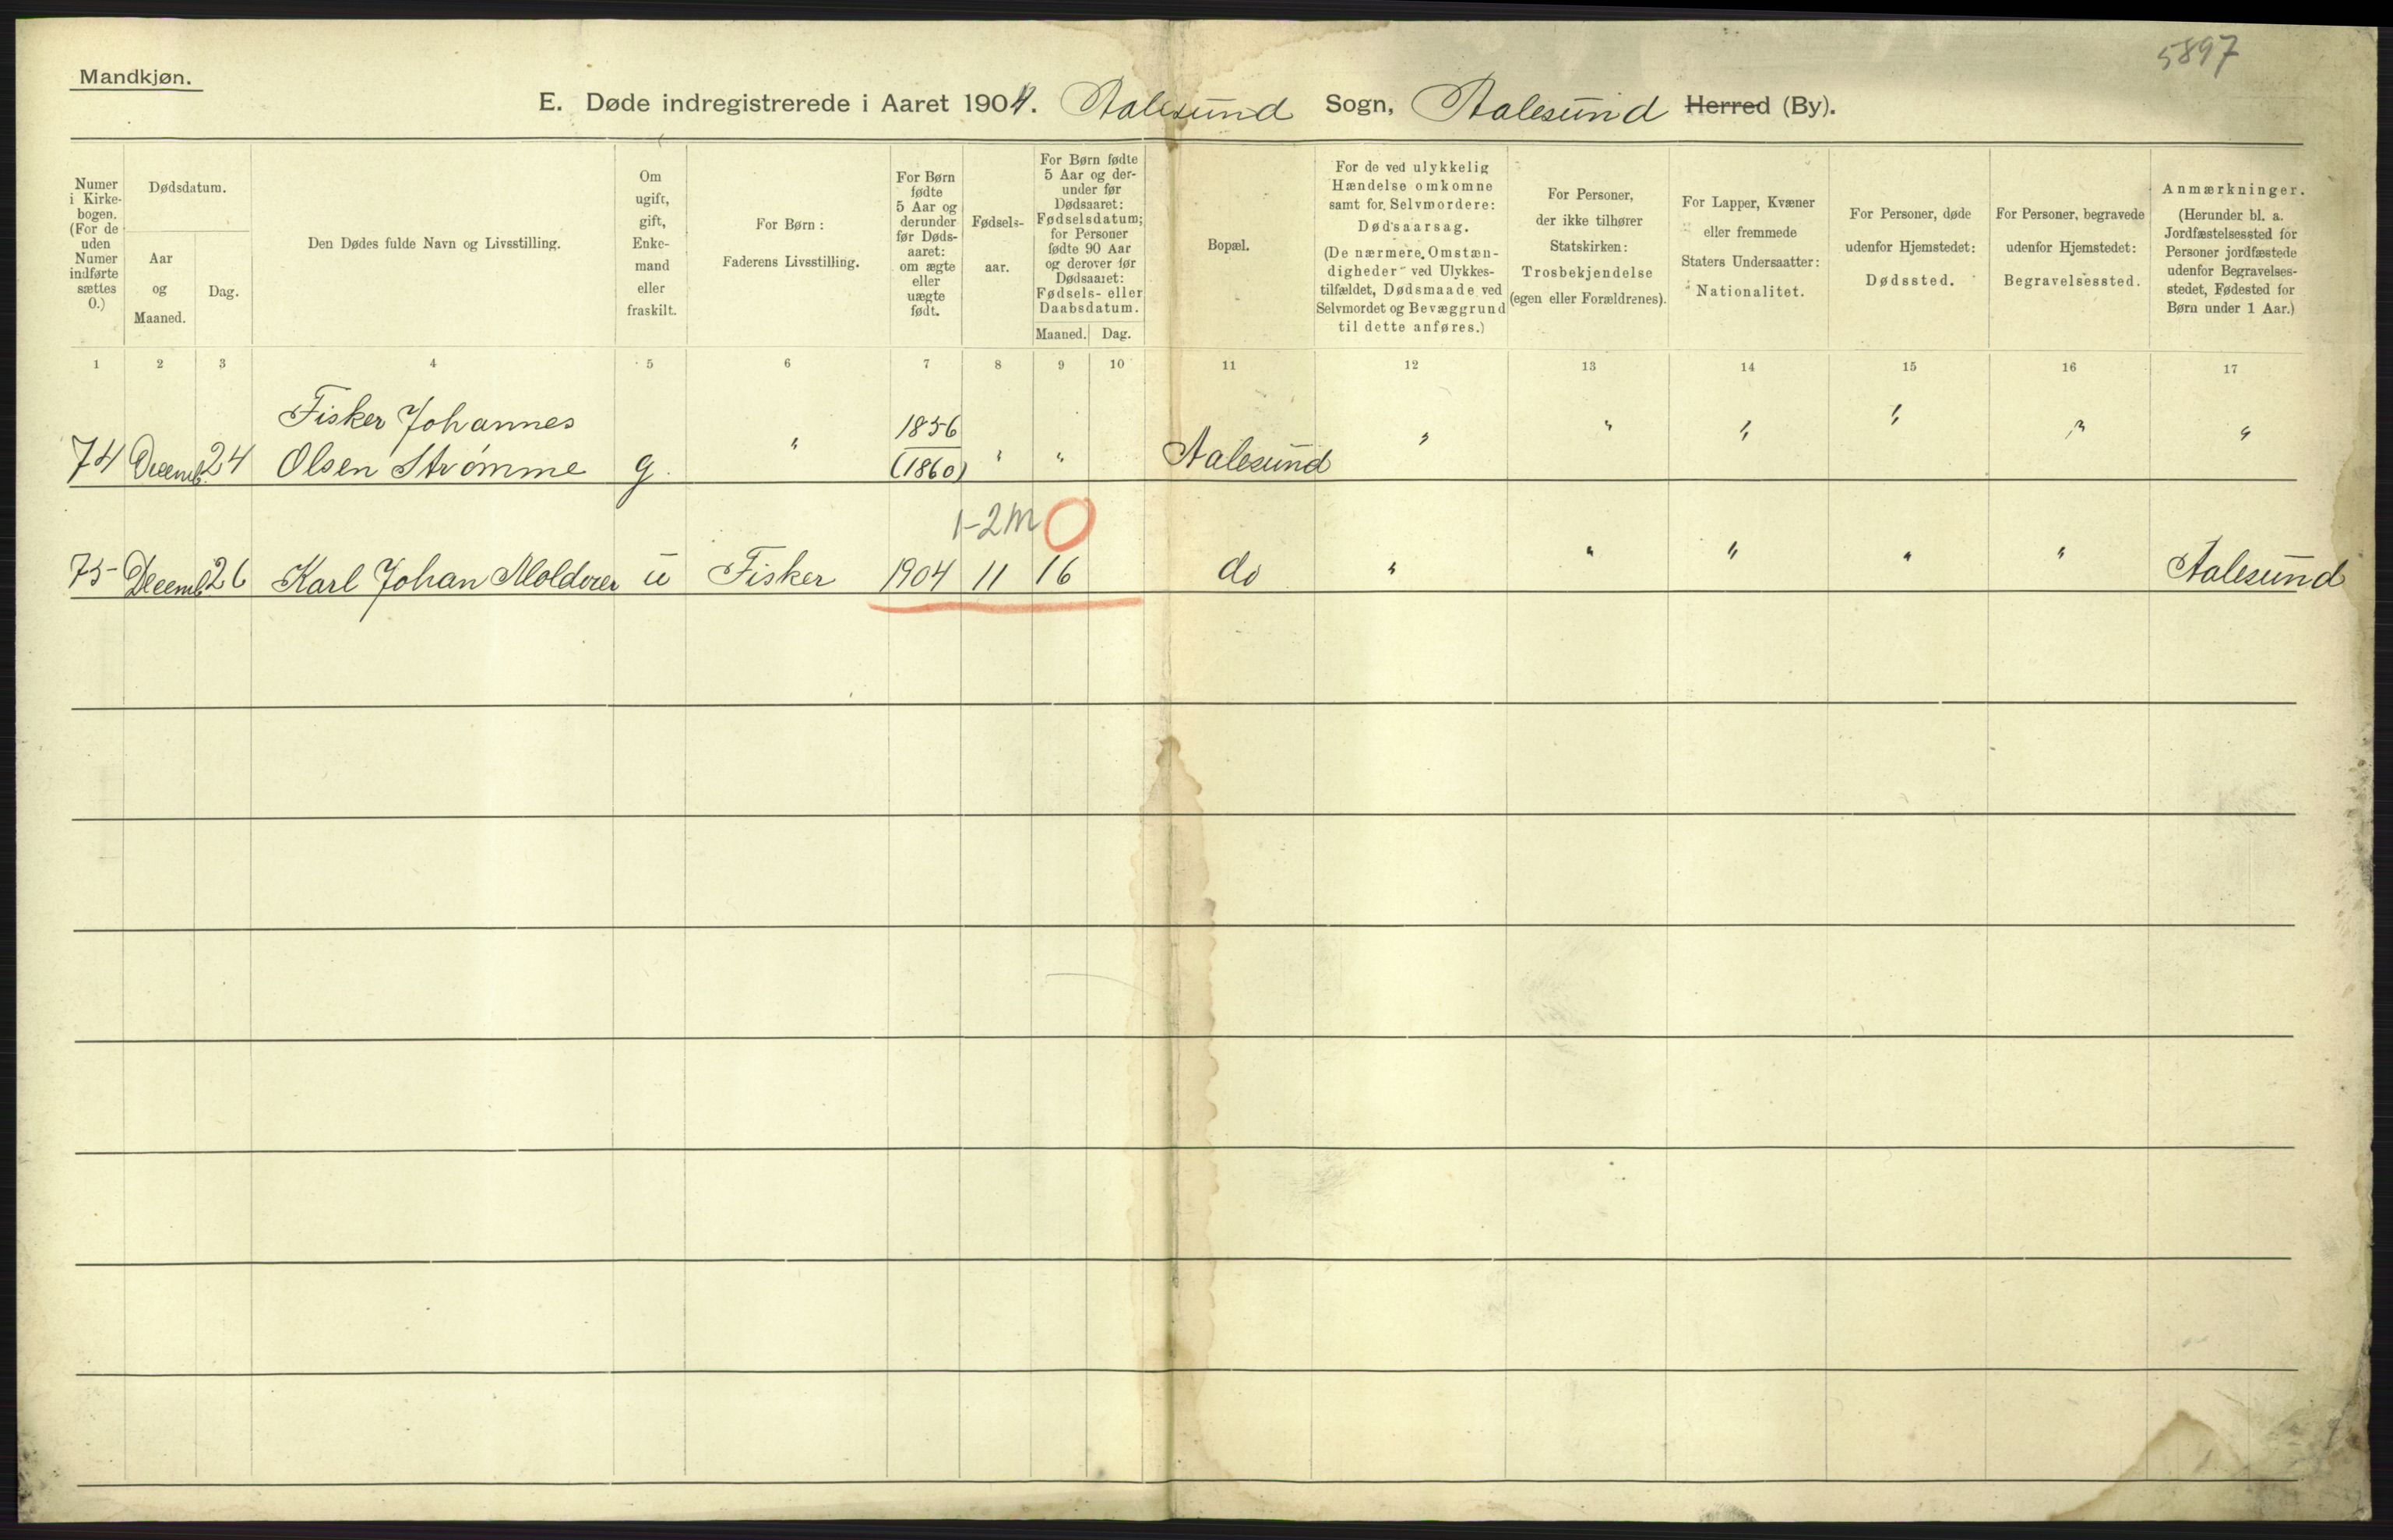 5897
Mandkjøn.
E. Døde indregistrerede i Aaret 1904. Aalesund Sogn, Aalesund Herred (By).
Numer
i Kirke-
bogen.
(For de
uden
Numer
indførte
sættes
0.)
Dødsdatum.
Aar
og
Maaned.
Dag.
Den Dødes fulde Navn og Livsstilling.
Om
ugift,
gift,
Enke-
mand
eller
fraskilt.
For Børn:
Faderens Livsstilling.
For Børn
fødte
5 Aar og
derunder
før Døds-
aaret:
om ægte
eller
uægte
født.
Fødsels-
aar.
For Børn fødte
5 Aar og der-
under før
Dødsaaret:
Fødselsdatum;
for Personer
fødte 90 Aar
og derover før
Dødsaaret:
Fødsels- eller
Daabsdatum.
Maaned. Dag.
Bopæl.
For de ved ulykkelig
Hændelse omkomne
samt for Selvmordere:
Dødsaarsag.
(De nærmere Omstæn-
digheder ved Ulykkes-
tilfældet, Dødsmaade ved
Selvmordet og Bevæggrund
til dette anføres.)
For Personer,
der ikke tilhører
Statskirken:
Trosbekjendelse
(egen eller Forældrenes).
For Lapper, Kvæner
eller fremmede
Staters Undersaatter:
Nationalitet.
For Personer, døde
udenfor Hjemstedet:
Dødssted.
For Personer, begravede
udenfor Hjemstedet:
Begravelsessted.
Anmærkninger.
(Herunder bl. a.
Jordfæstelsessted for
Personer jordfæstede
udenfor Begravelses-
stedet, Fødested for
Børn under 1 Aar.)
1 2 3 4 5 6 7 8 9 10 11 12 13 14 15 16 17
Fisker Johannes 1856
74 Decemb. 24 Olsen Strømme g. " (1860) " " Aalesund " " " " " "
1-2 m 0
75 Decemb. 26 Karl Johan u Fisker 1904 11 16 do " " " " " Aalesund